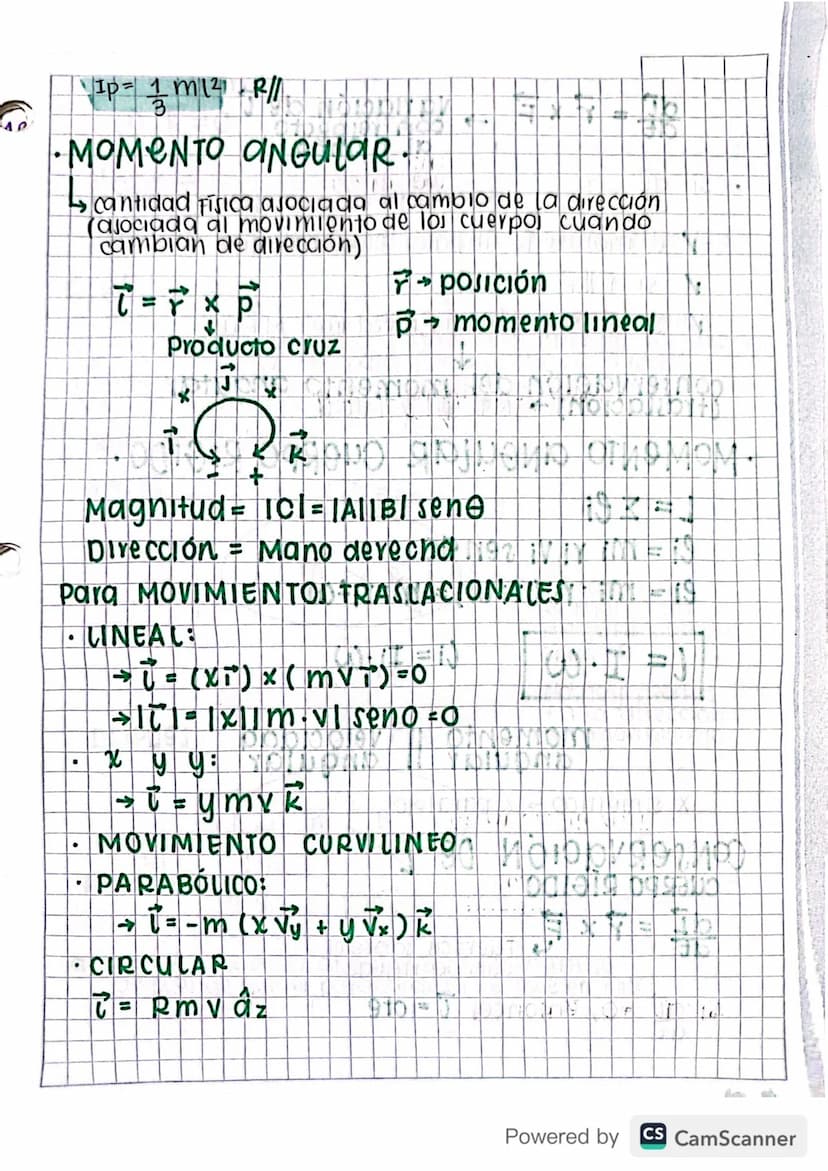 Ip = 1/3 ml² R//
· MOMENTO ANGULAR ·
↳ cantidad Física asociada al cambio de la dirección
(asociada al movimiento de los cuerpos cuando
cambian de dirección)
l⃗ = r⃗ x p⃗
r⃗ → posición
p⃗ → momento lineal
↓
Producto cruz
x j⃗ x
i⃗ k⃗
- +
Magnitud = |C| = |A||B| senθ
Dirección = Mano derecha
Para MOVIMIENTOS TRASLACIONALES:
· LINEAL:
→ l⃗ = (x r⃗) x (m v r⃗) = 0
→ |l⃗| = |x||m·v| sen0 = 0
· x y y:
→ l⃗ = y m v k⃗
· MOVIMIENTO CURVILINEO
· PARABÓLICO:
→ l⃗ = -m (x v⃗y + y v⃗x) k⃗
· CIRCULAR
l⃗ = R m v âz
Powered by CS CamScanner